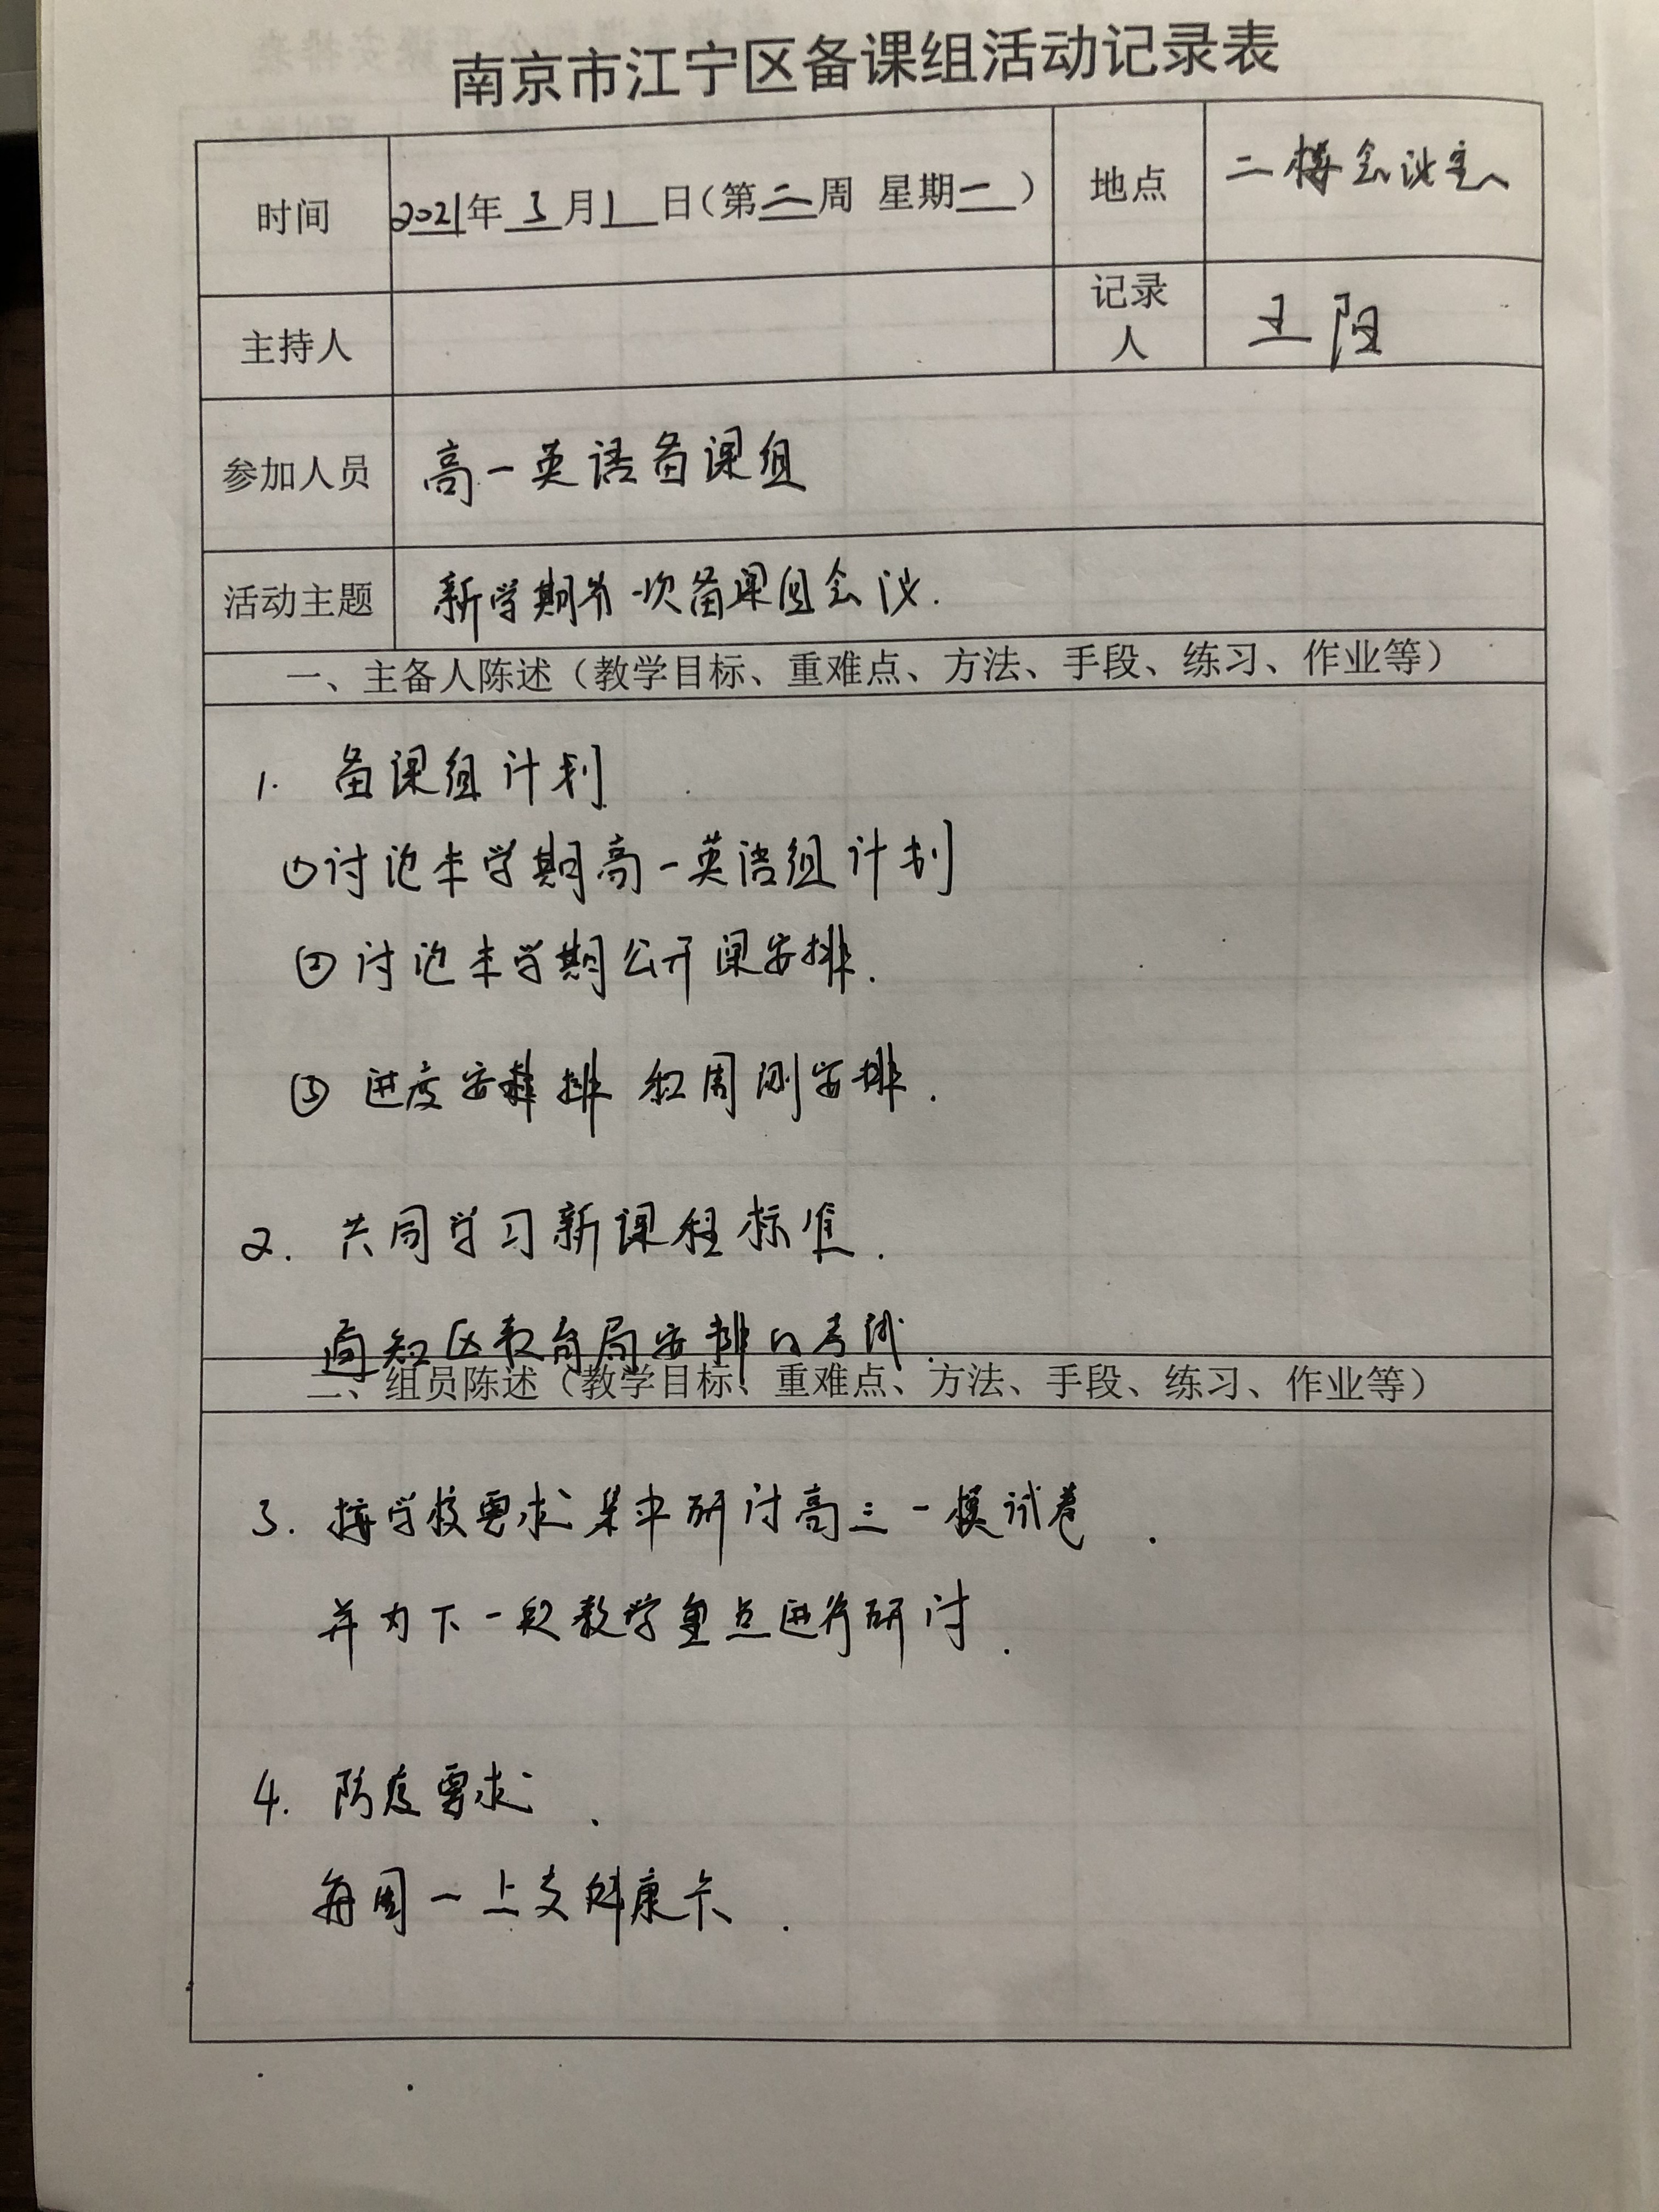 南京市江宁区备课组活动记录表
时间 2021年 3月1日(第二周 星期一) 地点 二楼会议室
主持人 记录人 王阳
参加人员 高一英语备课组
活动主题 新学期第一次备课组会议.
一、主备人陈述（教学目标、重难点、方法、手段、练习、作业等）
1. 备课组计划
①讨论本学期高一英语组计划
②讨论本学期公开课安排.
③ 进度安排 和周测安排.
2. 共同学习新课程标准.
通知区教育局安排的考试.
二、组员陈述（教学目标、重难点、方法、手段、练习、作业等）
3. 按学校要求集中研讨高三一模试卷.
并为下一段教学重点进行研讨.
4. 防疫要求、
每周一上交健康卡.